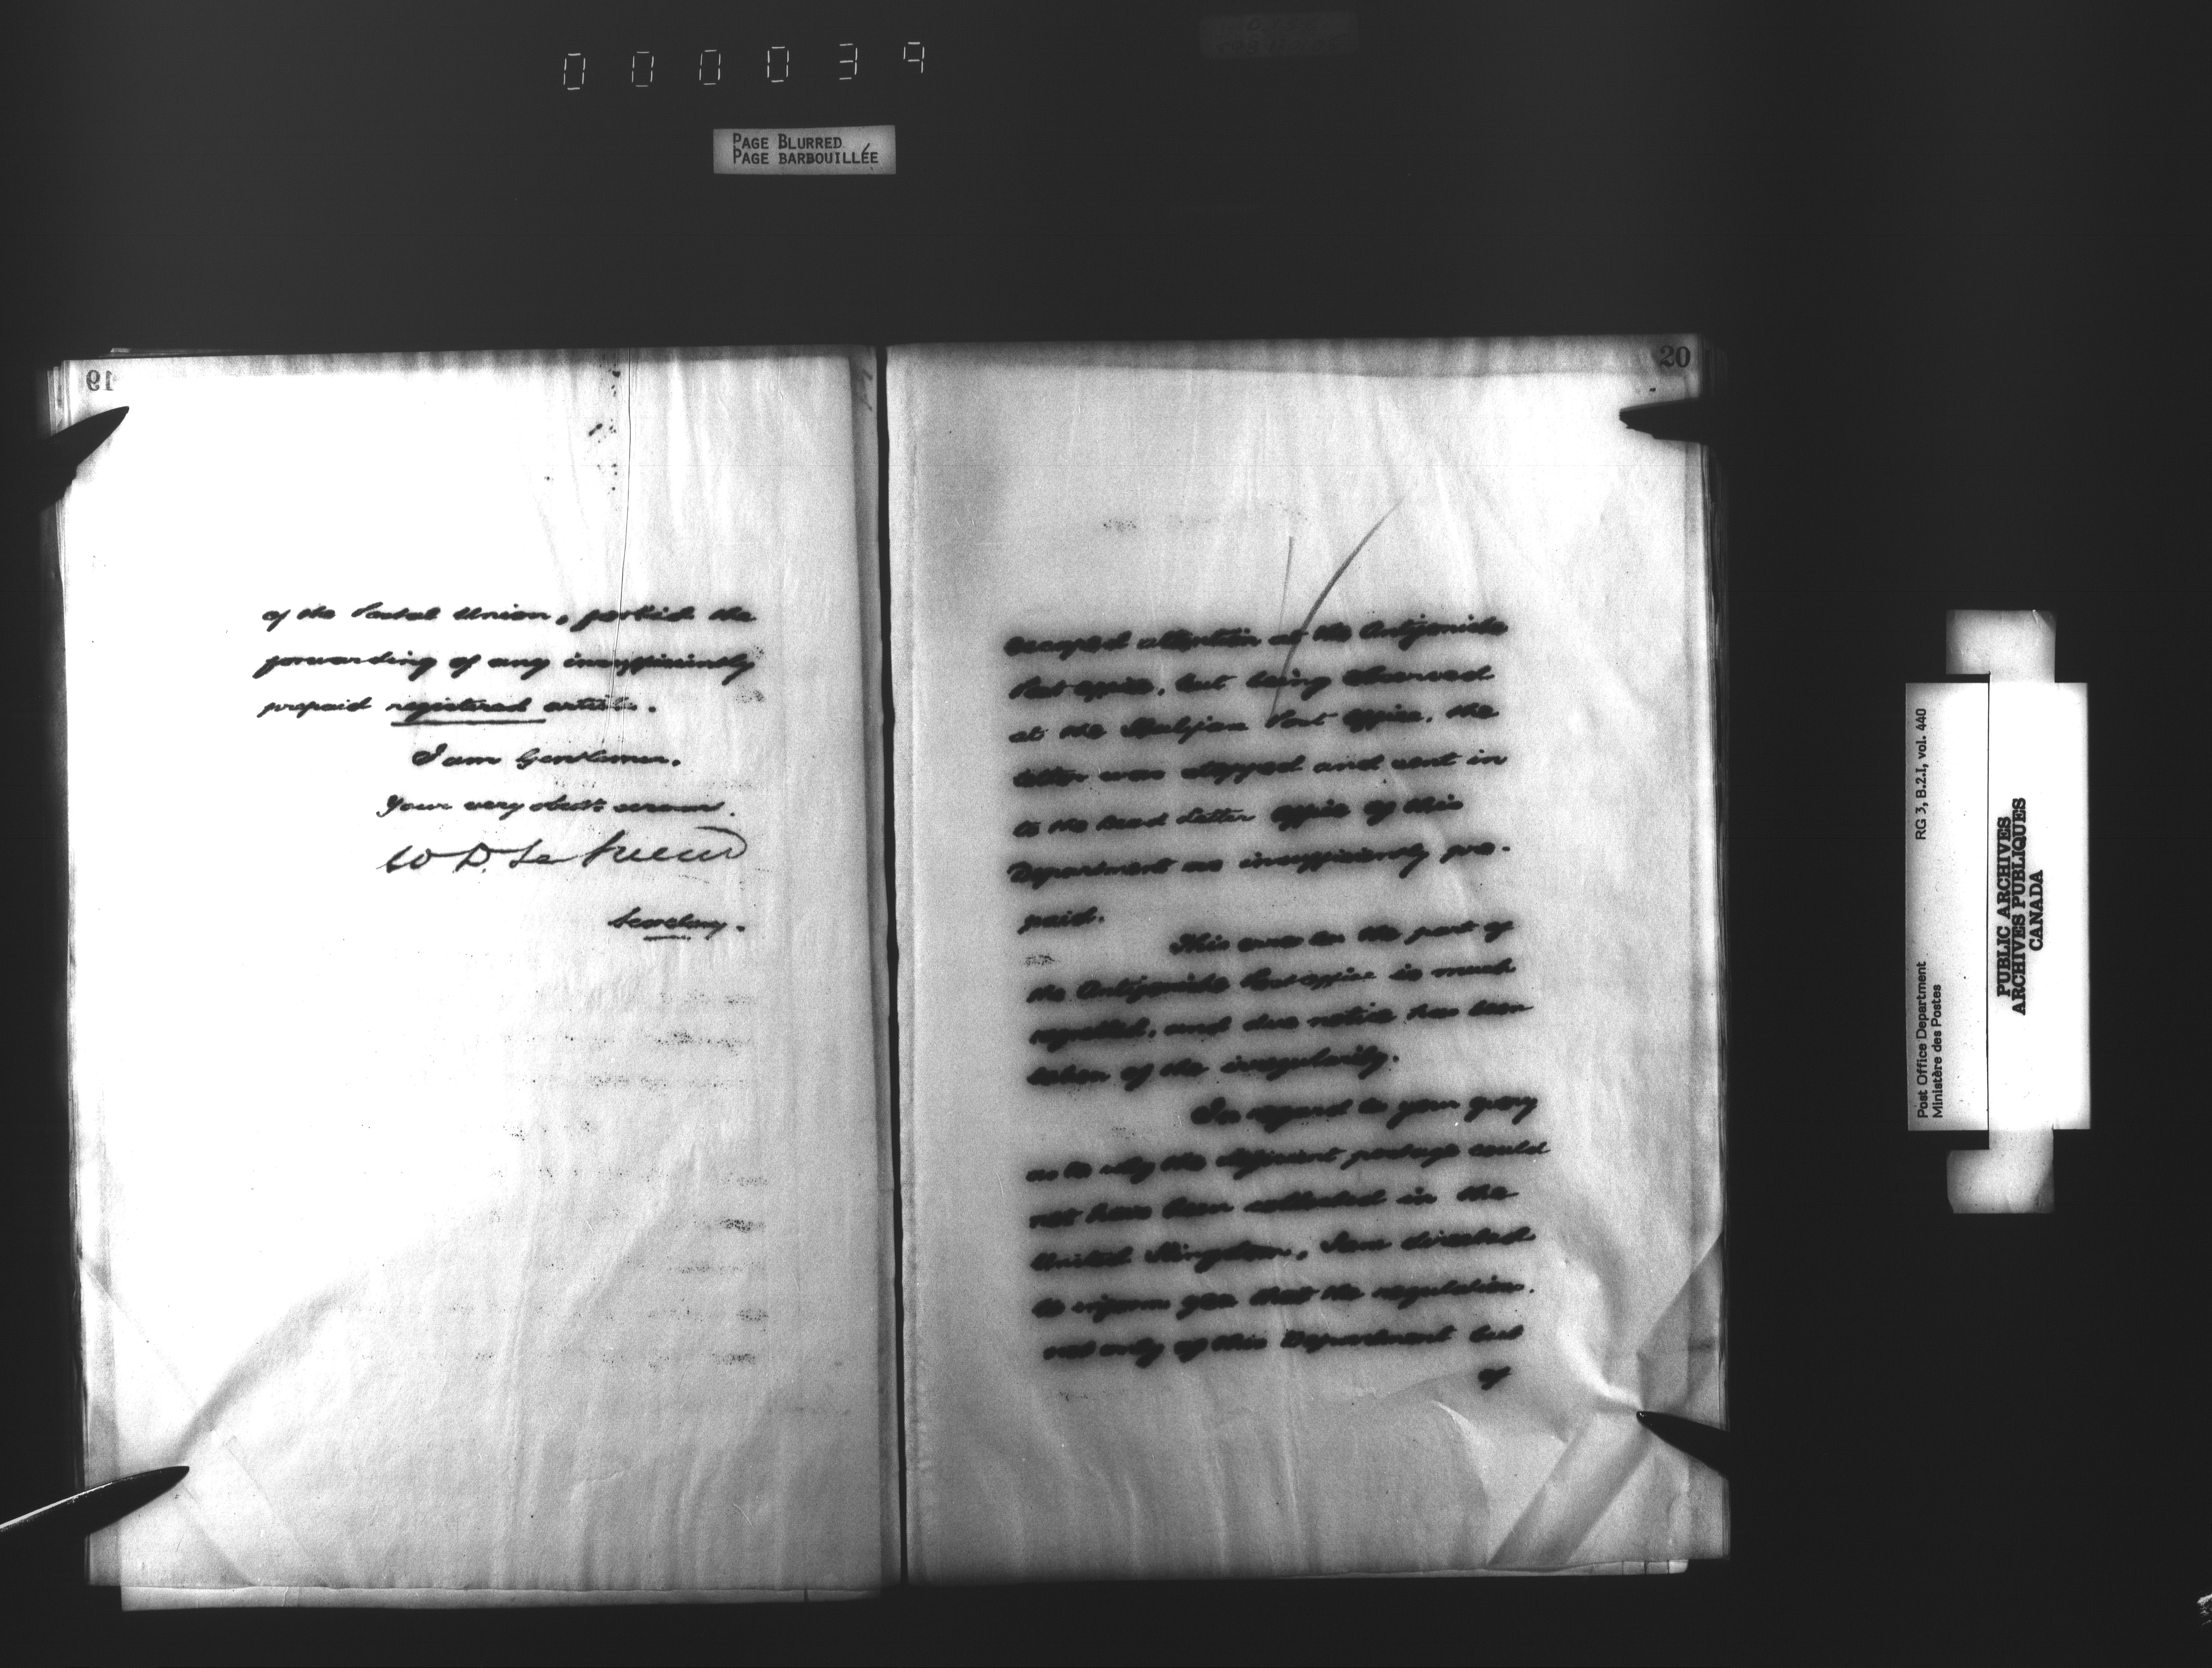 000039
PAGE BLURRED
PAGE BARBOUILLÉE
19
of the Postal Union, forbid the
forwarding of any insufficiently
prepaid registered article.
I am Gentlemen,
Your very obedt. servant.
W D. Le Sueur
Secretary.
20
escaped attention at the Antigonish
Post Office, but being observed
at the Halifax Post Office, the
letter was stopped and sent in
to the Dead Letter Office of this
Department as insufficiently pre-
paid.
This error on the part of
the Antigonish Post office is much
regretted, and due notice has been
taken of the irregularity.
In regard to your query
as to why the deficient postage could
not have been collected in the
United Kingdom, I am directed
to inform you that the regulations,
not only of this Department but
of
Post Office Department
Ministère des Postes
RG 3, B.2.I, vol. 440
PUBLIC ARCHIVES
ARCHIVES PUBLIQUES
CANADA